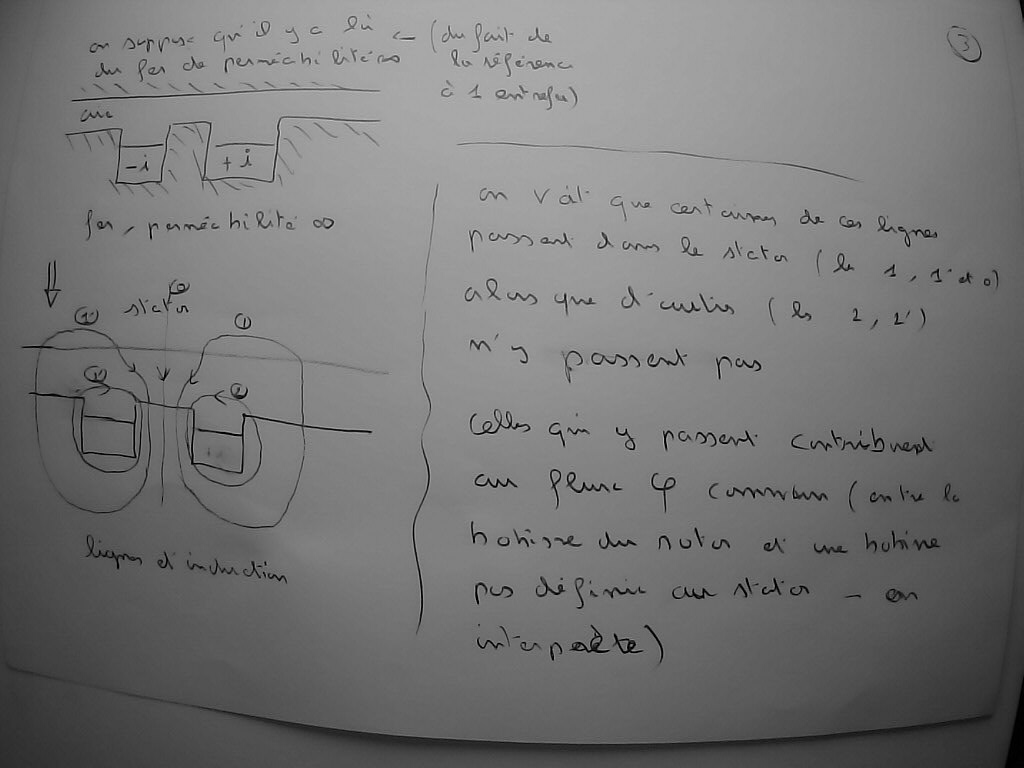 3
on suppose qu'il y a là ← (du fait de
du fer de perméabilité ∞ la référence
à 1 entrefer)
air
-i +i
fer, perméabilité ∞
stator
0
1' 1
2' 2
lignes d'induction
on voit que certaines de ces lignes
passent dans le stator (les 1, 1' et 0)
alors que d'autres (les 2, 2')
n'y passent pas
Celles qui y passent contribuent
au flux φ commun (entre la
bobine du rotor et une bobine
pas définie au stator – on
interprète)